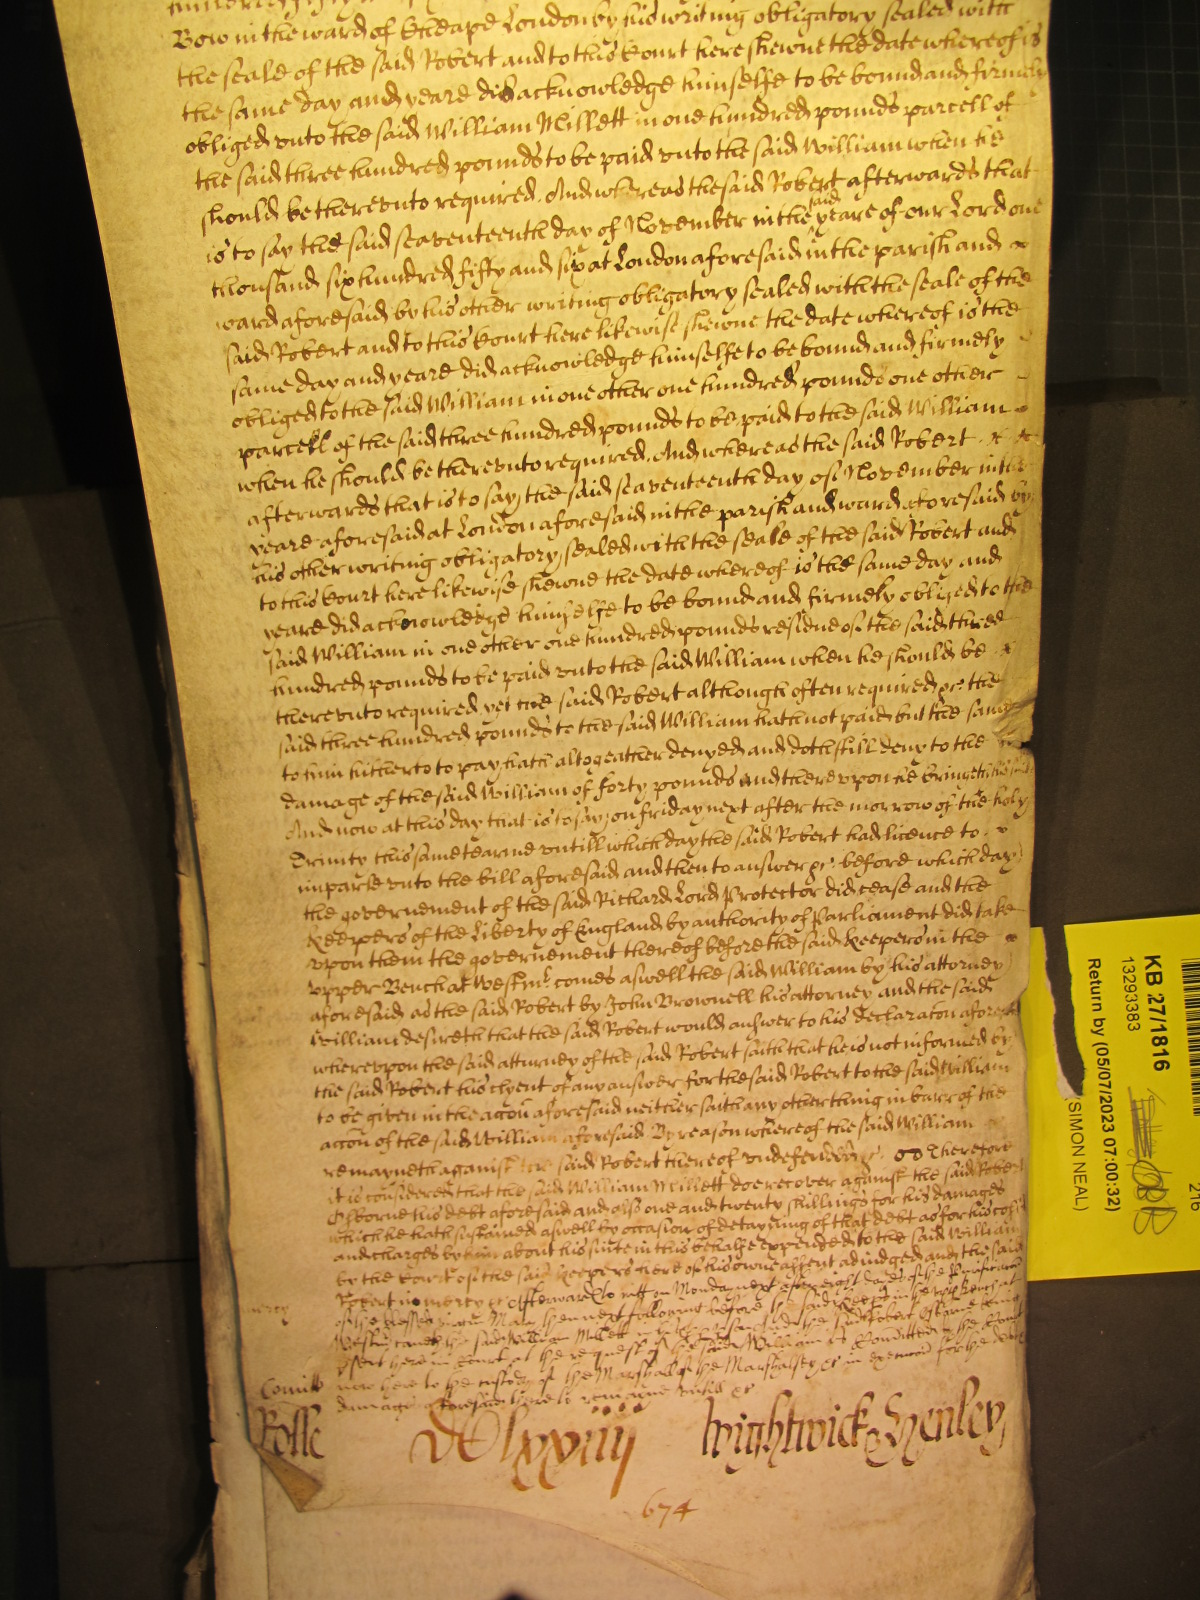 Bow in the ward of Cheape London by his writing obligatory sealed with
the seale of the said Robert and to this Court here shewne the date whereof is
the same day and yeare did acknowledge himselfe to be bound and firmely
obliged unto the said William Millett in one hundred pounds parcell of
the said three hundred pounds to be paid unto the said William when he
should be thereunto required. And whereas the said Robert afterwards that
is to say the said seaventeenth day of November in the said yeare of our Lord one
thousand six hundred fifty and six at London aforesaid in the parish and
ward aforesaid by his other writing obligatory sealed with the seale of the
said Robert and to this Court here likewise shewne the date whereof is the
same day and yeare did acknowledge himselfe to be bound and firmely
obliged to the said William in one other one hundred pounds one other
parcell of the said three hundred pounds to be paid to the said William
when he should be thereunto required. And whereas the said Robert
afterwards that is to say the said seaventeenth day of November in the
yeare aforesaid at London aforesaid in the parish and ward aforesaid by
his other writing obligatory sealed with the seale of the said Robert and
to this Court here likewise shewne the date whereof is the same day and
yeare did acknowledge himselfe to be bound and firmely obliged to the
said William in one other one hundred pounds residue of the said three
hundred pounds to be paid unto the said William when he should be
thereunto required yet the said Robert although often required &c. the
said three hundred pounds to the said William hath not paid but the same
to him hitherto to pay hath altogeather denyed and doth still deny to the
damage of the said William of forty pounds and thereupon he bringeth his suite
And now at this day that is to say on friday next after the morrow of the holy
Trinity this same tearme untill which day the said Robert had licence to
imparle unto the bill aforesaid and then to answer &c. before which day
the governement of the said Richard Lord Protector did cease and the
Keepers of the Liberty of England by authority of Parliament did take
upon them the governement thereof before the said Keepers in the
upper Bench at Westmr comes aswell the said William by his attorney
aforesaid as the said Robert by John Brownell his attorney and the said
William desireth that the said Robert would answer to his declaracon aforesaid
whereupon the said atturney of the said Robert saith that he is not informed by
the said Robert his clyent of any answer for the said Robert to the said William
to be given in the accon aforesaid neither saith any other thing in barr of the
accon of the said William aforesaid By reason whereof the said William
remayneth against the said Robert thereof undefended &c. Therefore
it is considered that the said William Millett doe recover against the said Robert
Osborne his debt aforesaid and also one and twenty shillings for his damages
which he hath sustained aswell by occasion of detayning of that debt as for his costs
and charges by him about his suite in this behalfe expended to the said William
by the Court of the said Keepers here of his owne assent adjudged and the said
mercy
Robert in mercy &c Afterwards to witt on Monday next after eight dayes of the Purificacon
of the blessed virgin Mary then next following before the said Keepers in the upper Bench at
Westmr cometh the said William Millett in his and the said Robert Osborne being
psent here in Court at the request of the said William is Comitted by the Court
Comitt
now here to the custody of the Marshall of the Marshalsey &c in execucon for the debt
damages aforesaid there to remayne untill &c
Rolle
DClxxiiij
Wightwick & Henley
674
KB 27/1816
13293383
Return by (05/07/2023 07:00:32)
SIMON NEAL)
216